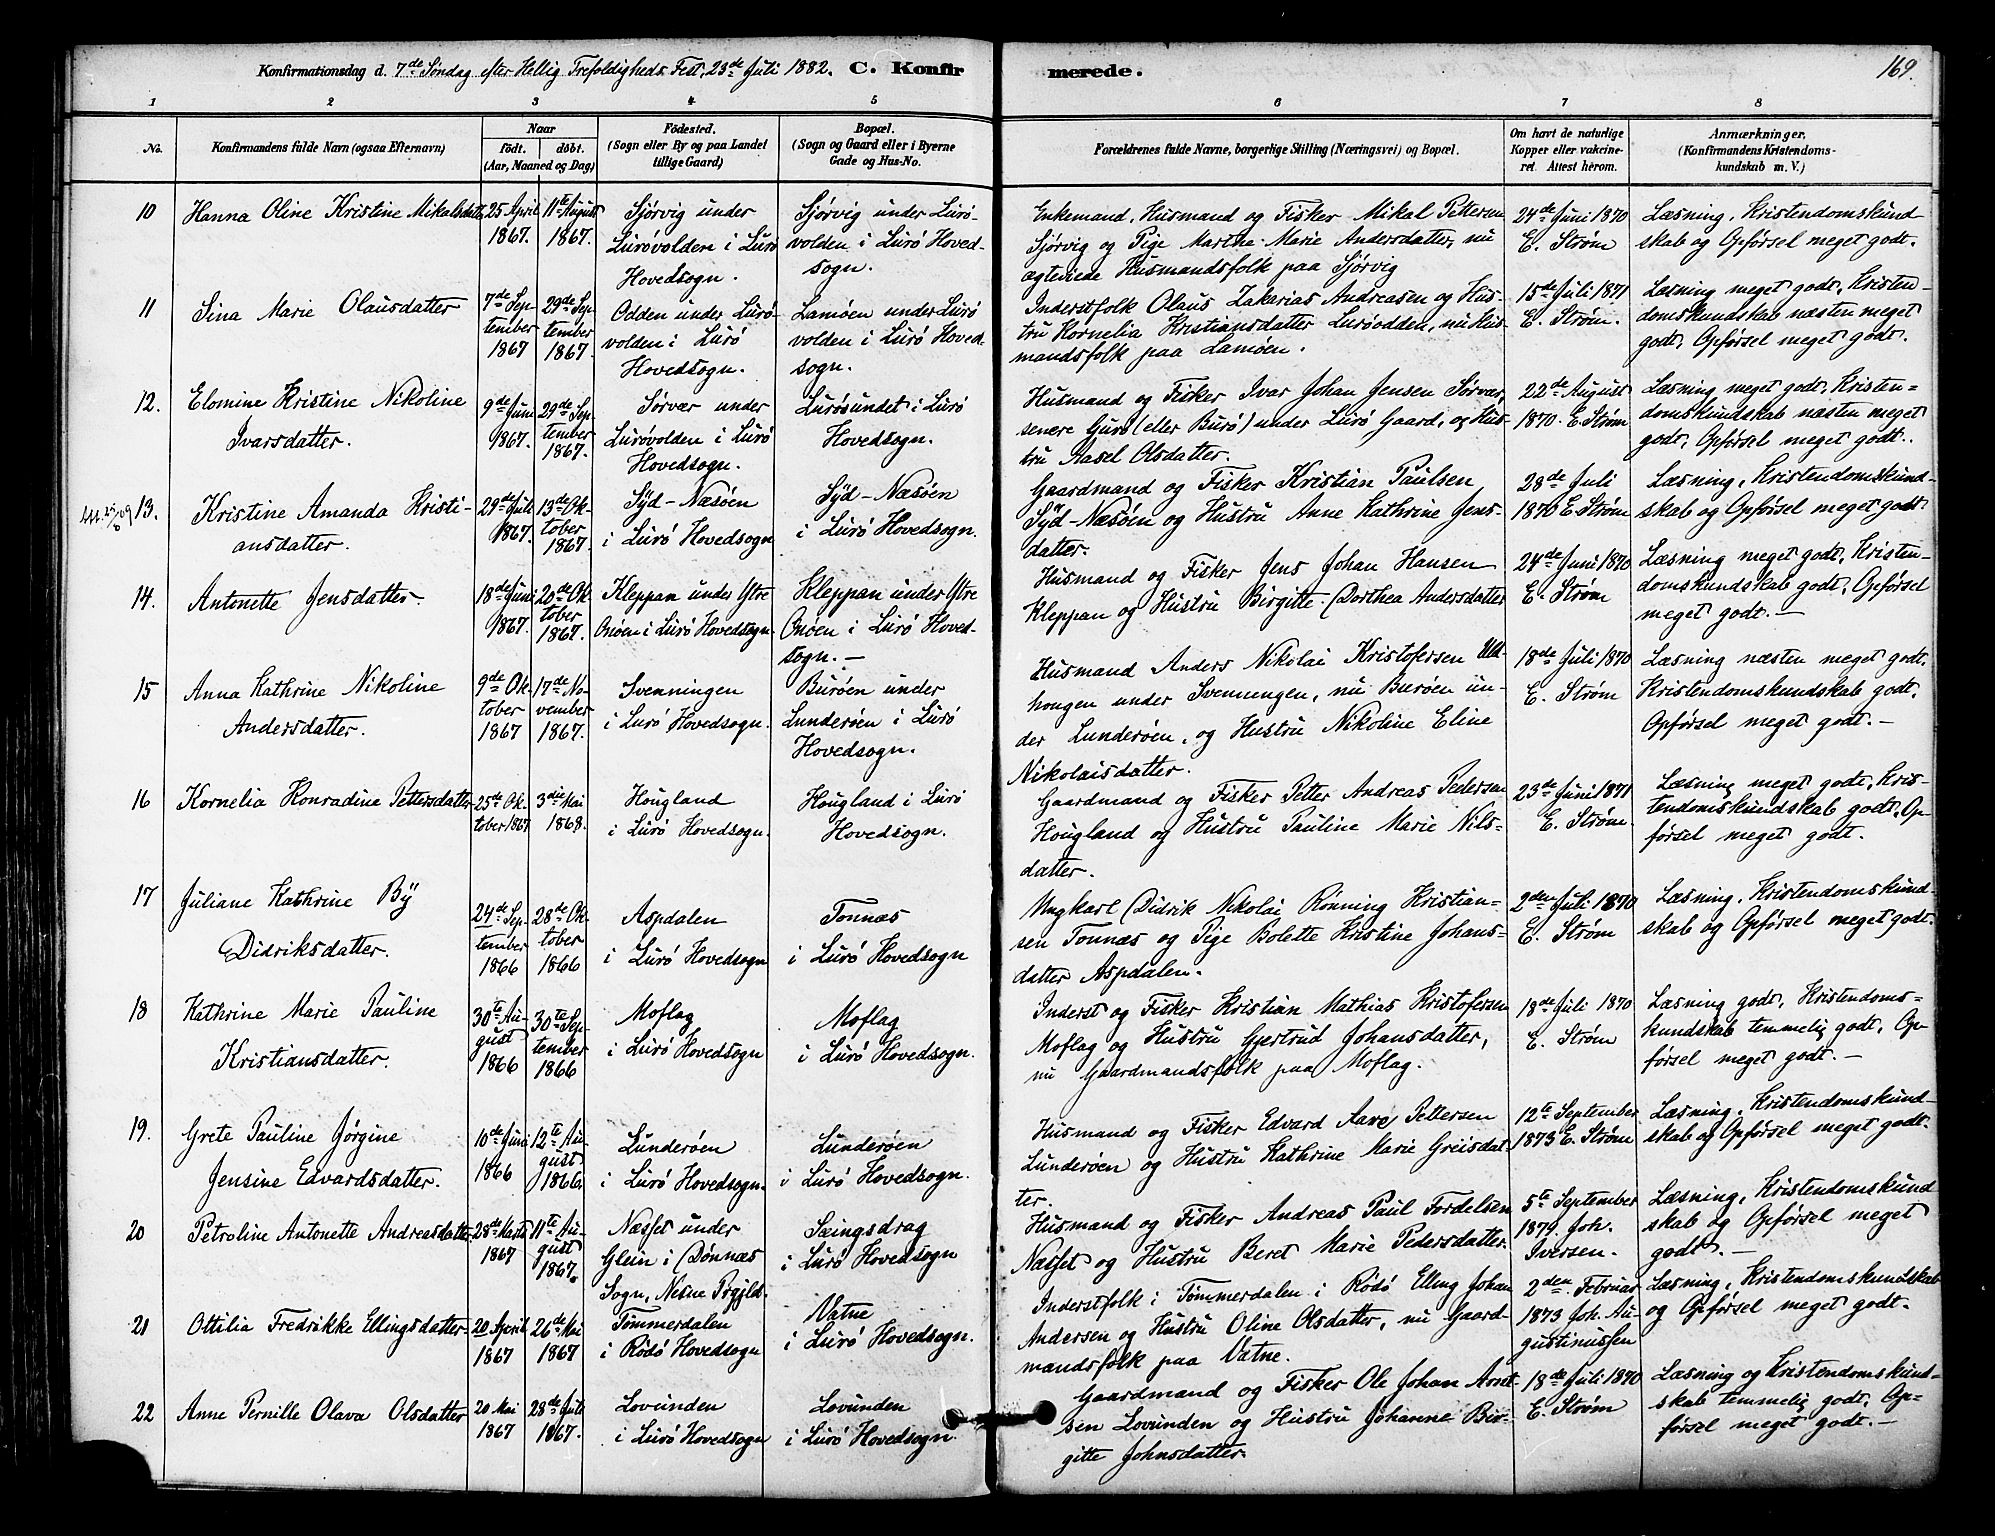 Konfirmationsdag d. 7de Søndag efter Hellig Trefoldigheds Fest, 23de Juli 1882. C. Konfir
merede. 169.
1 2 3 4 5 6 7 8
No. Konfirmandens fulde Navn (ogsaa Efternavn)
Naar
født. døbt.
(Aar, Maaned og Dag)
Fødested.
(Sogn eller By og paa Landet
tillige Gaard)
Bopæl.
(Sogn og Gaard eller i Byerne
Gade og Hus-No.
Forældrenes fulde Navne, borgerlige Stilling (Næringsvei) og Bopæl.
Om havt de naturlige
Kopper eller vakcine-
ret. Attest herom.
Anmærkninger,
(Konfirmandens Kristendoms-
kundskab m. V.)
10 Hanna Oline Kristine Mikalsdatter
25 April
1867.
11te August
1867.
Sjórvig under
Lurövolden i Lurö
Hovedsogn.
Sjórvig under Lurö-
volden i Lurö Hoved-
sogn.
Enkemand, Husmand og Fisker Mikal Pettersen
Sjórvig og Pige Marthe Marie Andersdatter, nu
ægteviede Husmandsfolk paa Sjórvig
24de Juni 1870
E. Strøm
Læsning, Kristendomskund-
skab og Opførsel meget godt.
11 Sina Marie Olausdatter
7de Sep-
tember
1867
29de Sep-
tember
1867.
Odden under Lurö-
volden i Lurö
Hovedsogn.
Lamöen under Lurö
volden i Lurö Hoved-
sogn.
Inderstfolk Olaus Zakarias Andreasen og Hus-
tru Kornelia Kristiansdatter Luröodden, nu Hus-
mandsfolk paa Lamöen.
15de Juli 1871
E. Strøm.
Læsning meget godt, Kristen-
domskundskab næsten meget
godt, Opførsel meget godt.
12. Elomine Kristine Nikoline
Ivarsdatter.
9de Juni
1867.
29de Sep-
tember
1867.
Sörvær under
Lurövolden i Lurö
Hovedsogn.
Lurösundet i Lurö
Hovedsogn.
Husmand og Fisker Ivar Johan Jensen Sørvær,
senere Gurö (eller Burö) under Lurö Gaard, og Hus-
tru Aasel Olsdatter.
22de August
1870. E. Strøm
Læsning meget godt, Kristen-
domskundskab næsten meget
godt, Opførsel meget godt.
13. Kristine Amanda Kristi-
ansdatter.
29de Juli
1867.
13de Ok-
tober
1867.
Syd-Næsöen
i Lurö Hovedsogn
Syd-Næsöen
i Lurö Hovedsogn.
Gaardmand og Fisker Kristian Paulsen
Syd-Næsöen og Hustru Anne Kathrine Jens-
datter.
28de Juli
1870 E. Strøm
Læsning, Kristendomskund-
skab og Opførsel meget godt
14. Antonette Jensdatter.
18de Juni
1867.
20de Ok-
tober
1867.
Kleppan under Ytre
Onöen i Lurö Hovedsogn.
Kleppan under Ytre
Onöen i Lurö Hoved-
sogn.—
Husmand og Fisker Jens Johan Hansen
Kleppan og Hustru Birgitte Dorthea Andersdatter
24de Juni 1870
E. Strøm
Læsning meget godt, Kristen-
domskundskab godt, Opførsel
meget godt.—
15 Anna Kathrine Nikoline
Andersdatter.
9de Ok-
tober
1867
17de No-
vember
1867.
Svenningen
i Lurö Hovedsogn.
Buröen under
Lunderöen i Lurö
Hovedsogn.
Husmand Anders Nikolai Kristofersen
hougen under Svenningen, nu Buröen un-
der Lunderöen, og Hustru Nikoline Eline
Nikolaisdatter.
18de Juli 1870
E. Strøm
Læsning næsten meget godt,
Kristendomskundskab godt,
Opførsel meget godt.—
16 Kornelia Konradine Pettersdatter
25de Ok-
tober 1867
3die Mai
1868.
Hougland
i Lurö Hovedsogn.
Hougland i Lurö
Hovedsogn.
Gaardmand og Fisker Petter Andreas Pedersen
Hougland og Hustru Pauline Marie Nils-
datter.
23de Juni 1871
E. Strøm.
Læsning meget godt, Kris-
tendomskundskab godt, Op-
førsel meget godt.
17 Juliane Kathrine By
Didriksdatter.
24de Sep-
tember
1866
28de Ok-
tober
1866
Aspdalen
i Lurö Hovedsogn
Tonnæs
i Lurö Hovedsogn
Ungkarl Didrik Nikolai Rönning Kristian-
sen Tonnæs og Pige Bolette Kristine Johans-
datter Aspdalen.
2den Juli 1870
E. Strøm
Læsning, Kristendomskund-
skab og Opførsel meget godt.
18 Kathrine Marie Pauline
Kristiansdatter.
30te Au-
gust
1866
30te Sep-
tember
1866
Moflag
i Lurö Hovedsogn
Moflag
i Lurö Hovedsogn.
Inderst og Fisker Kristian Mathias Kristofersen
Moflag og Hustru Gjertrud Johansdatter,
nu Gaardmandsfolk paa Moflag.
18de Juli 1870
E. Strøm
Læsning godt, Kristendoms-
kundskab temmelig godt, Op-
førsel meget godt.—
19. Grete Pauline Jørgine
Jensine Edvardsdatter.
10de Juni
1866
12te Au-
gust
1866.
Lunderöen
i Lurö Hovedsogn.
Lunderöen
i Lurö Hovedsogn.
Husmand og Fisker Edvard Aare Pettersen
Lunderöen og Hustru Kathrine Marie Greisdat-
ter.
12te September
1873 E. Strøm
Læsning, Kristendomskund-
skab og Opførsel meget godt.
20 Petroline Antonette Andreasdatter
28de Marts
1867
11te Au-
gust
1867.
Næsset under
Glein i Dönnæs
Sogn, Nesne Prgjld.
Sæingsdrag
i Lurö Hovedsogn
Husmand og Fisker Andreas Paul Tordelsen
Næsset og Hustru Beret Marie Pedersdatter.
5te September
1879. Joh.
Iversen.
Læsning, Kristendomskund-
skab og Opførsel meget
godt.—
21 Ottilia Fredrikke Ellingsdatter.
20 April
1867
26de Mai
1867
Tömmerdalen
i Rödö Hovedsogn
Vatne
i Lurö Hovedsogn.
Inderstfolk i Tömmerdalen i Rödö Elling Johan
Andersen og Hustru Oline Olsdatter, nu Gaard-
mandsfolk paa Vatne.
2den Februar
1873 Joh. Au-
gustinussen
Læsning, Kristendomskundskab
og Opførsel meget godt.
22 Anne Pernille Olava Olsdatter
20 Mai
1867
28de Juli
1867.
Lovunden
i Lurö Hovedsogn
Lovunden
i Lurö Hovedsogn.
Gaardmand og Fisker Ole Johan Arnt-
sen Lovunden og Hustru Johanne Bir-
gitte Johnsdatter.
18de Juli 1870
E. Strøm
Læsning og Kristendomskund-
skab temmelig godt, Op-
førsel meget godt.—